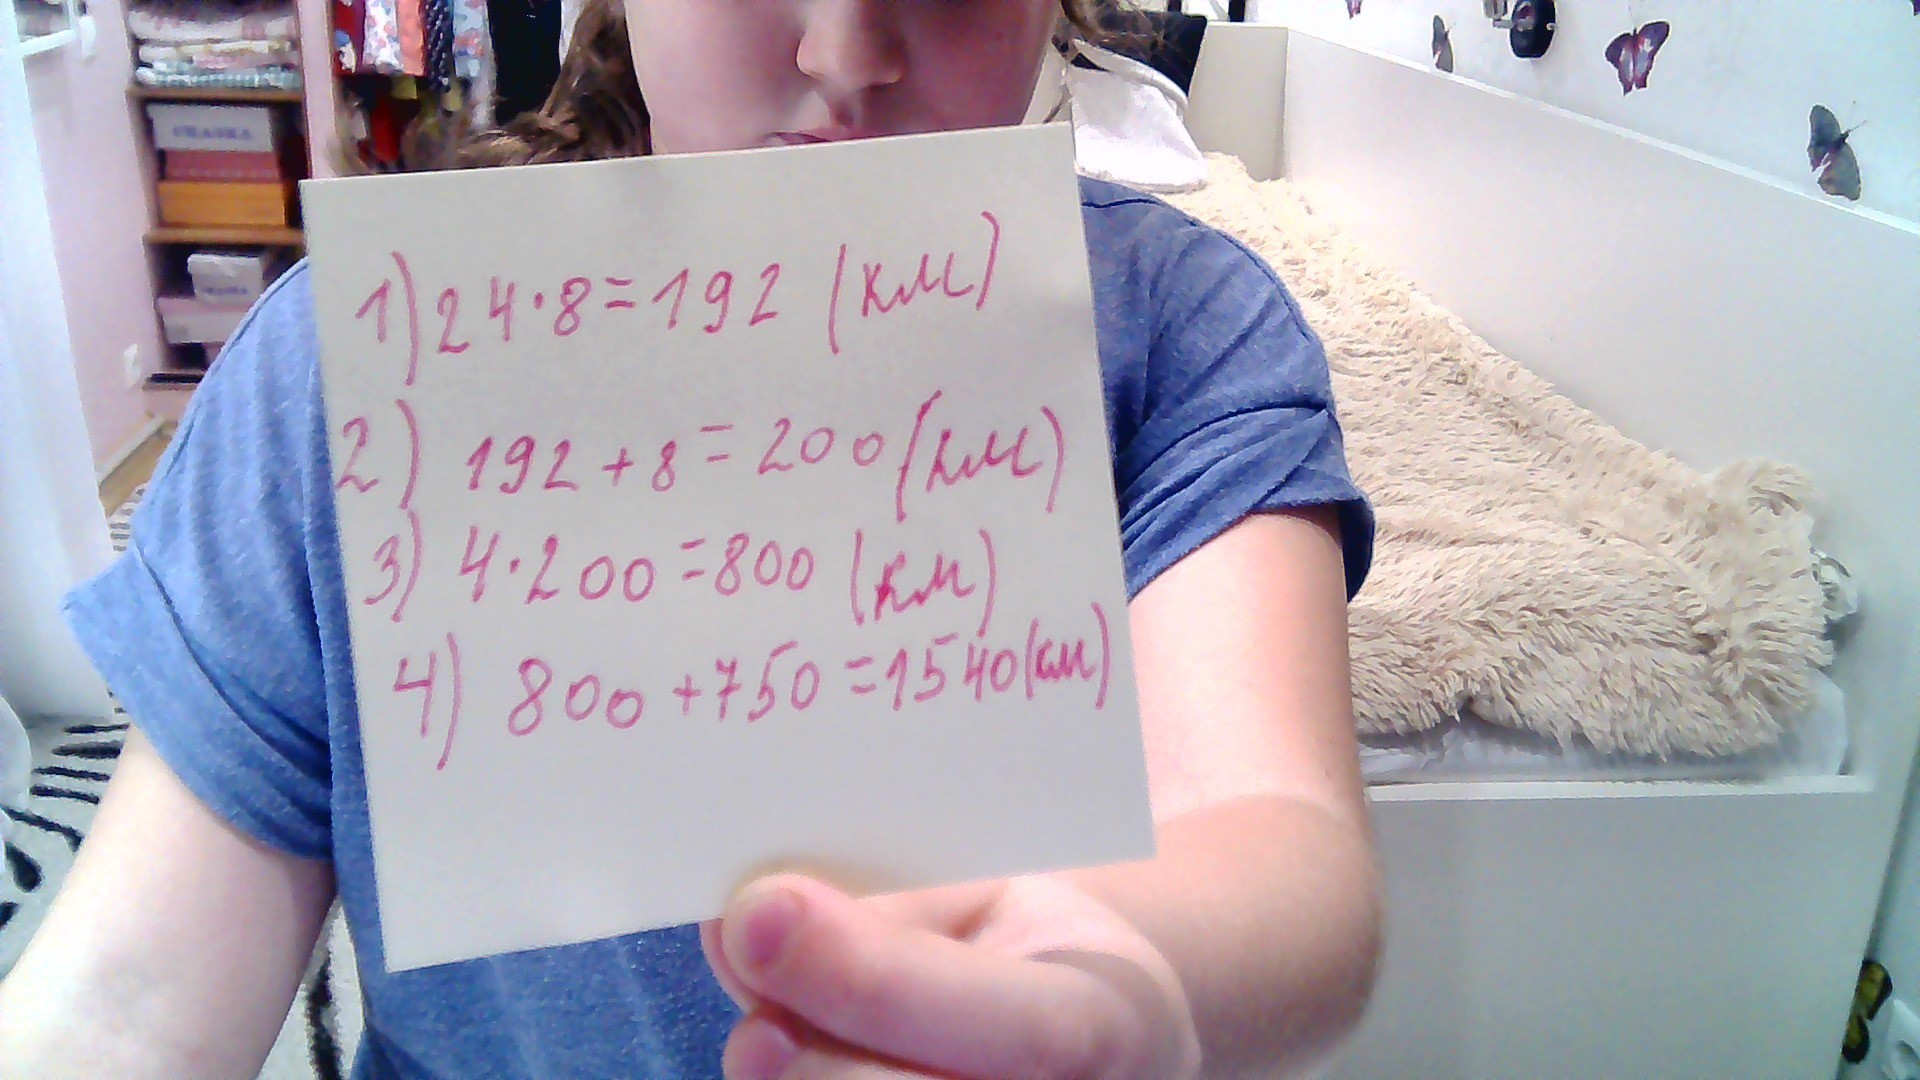 СКАЗКА
1) 24·8=192 (км)
2) 192+8=200(км)
3) 4·200=800 (км)
4) 800+750=1540(км)